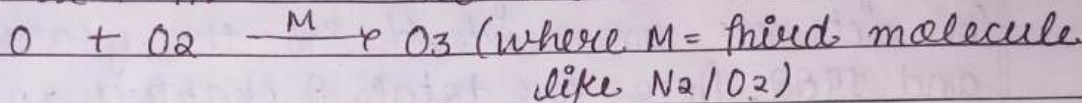 O + O2 —M→ O3 (where M = third molecule
like N2/O2)